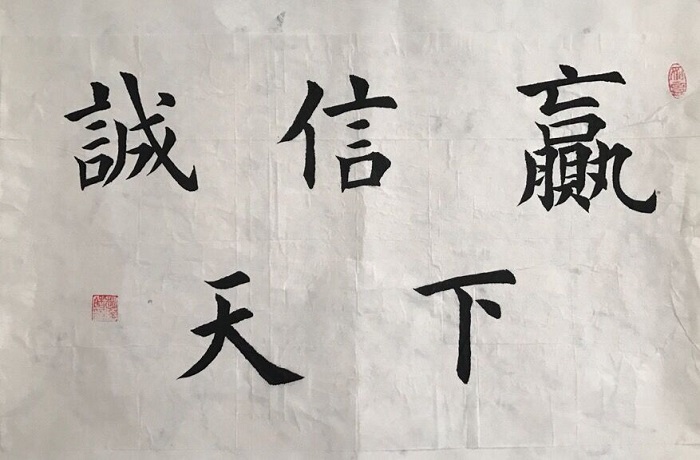 誠信贏
天下